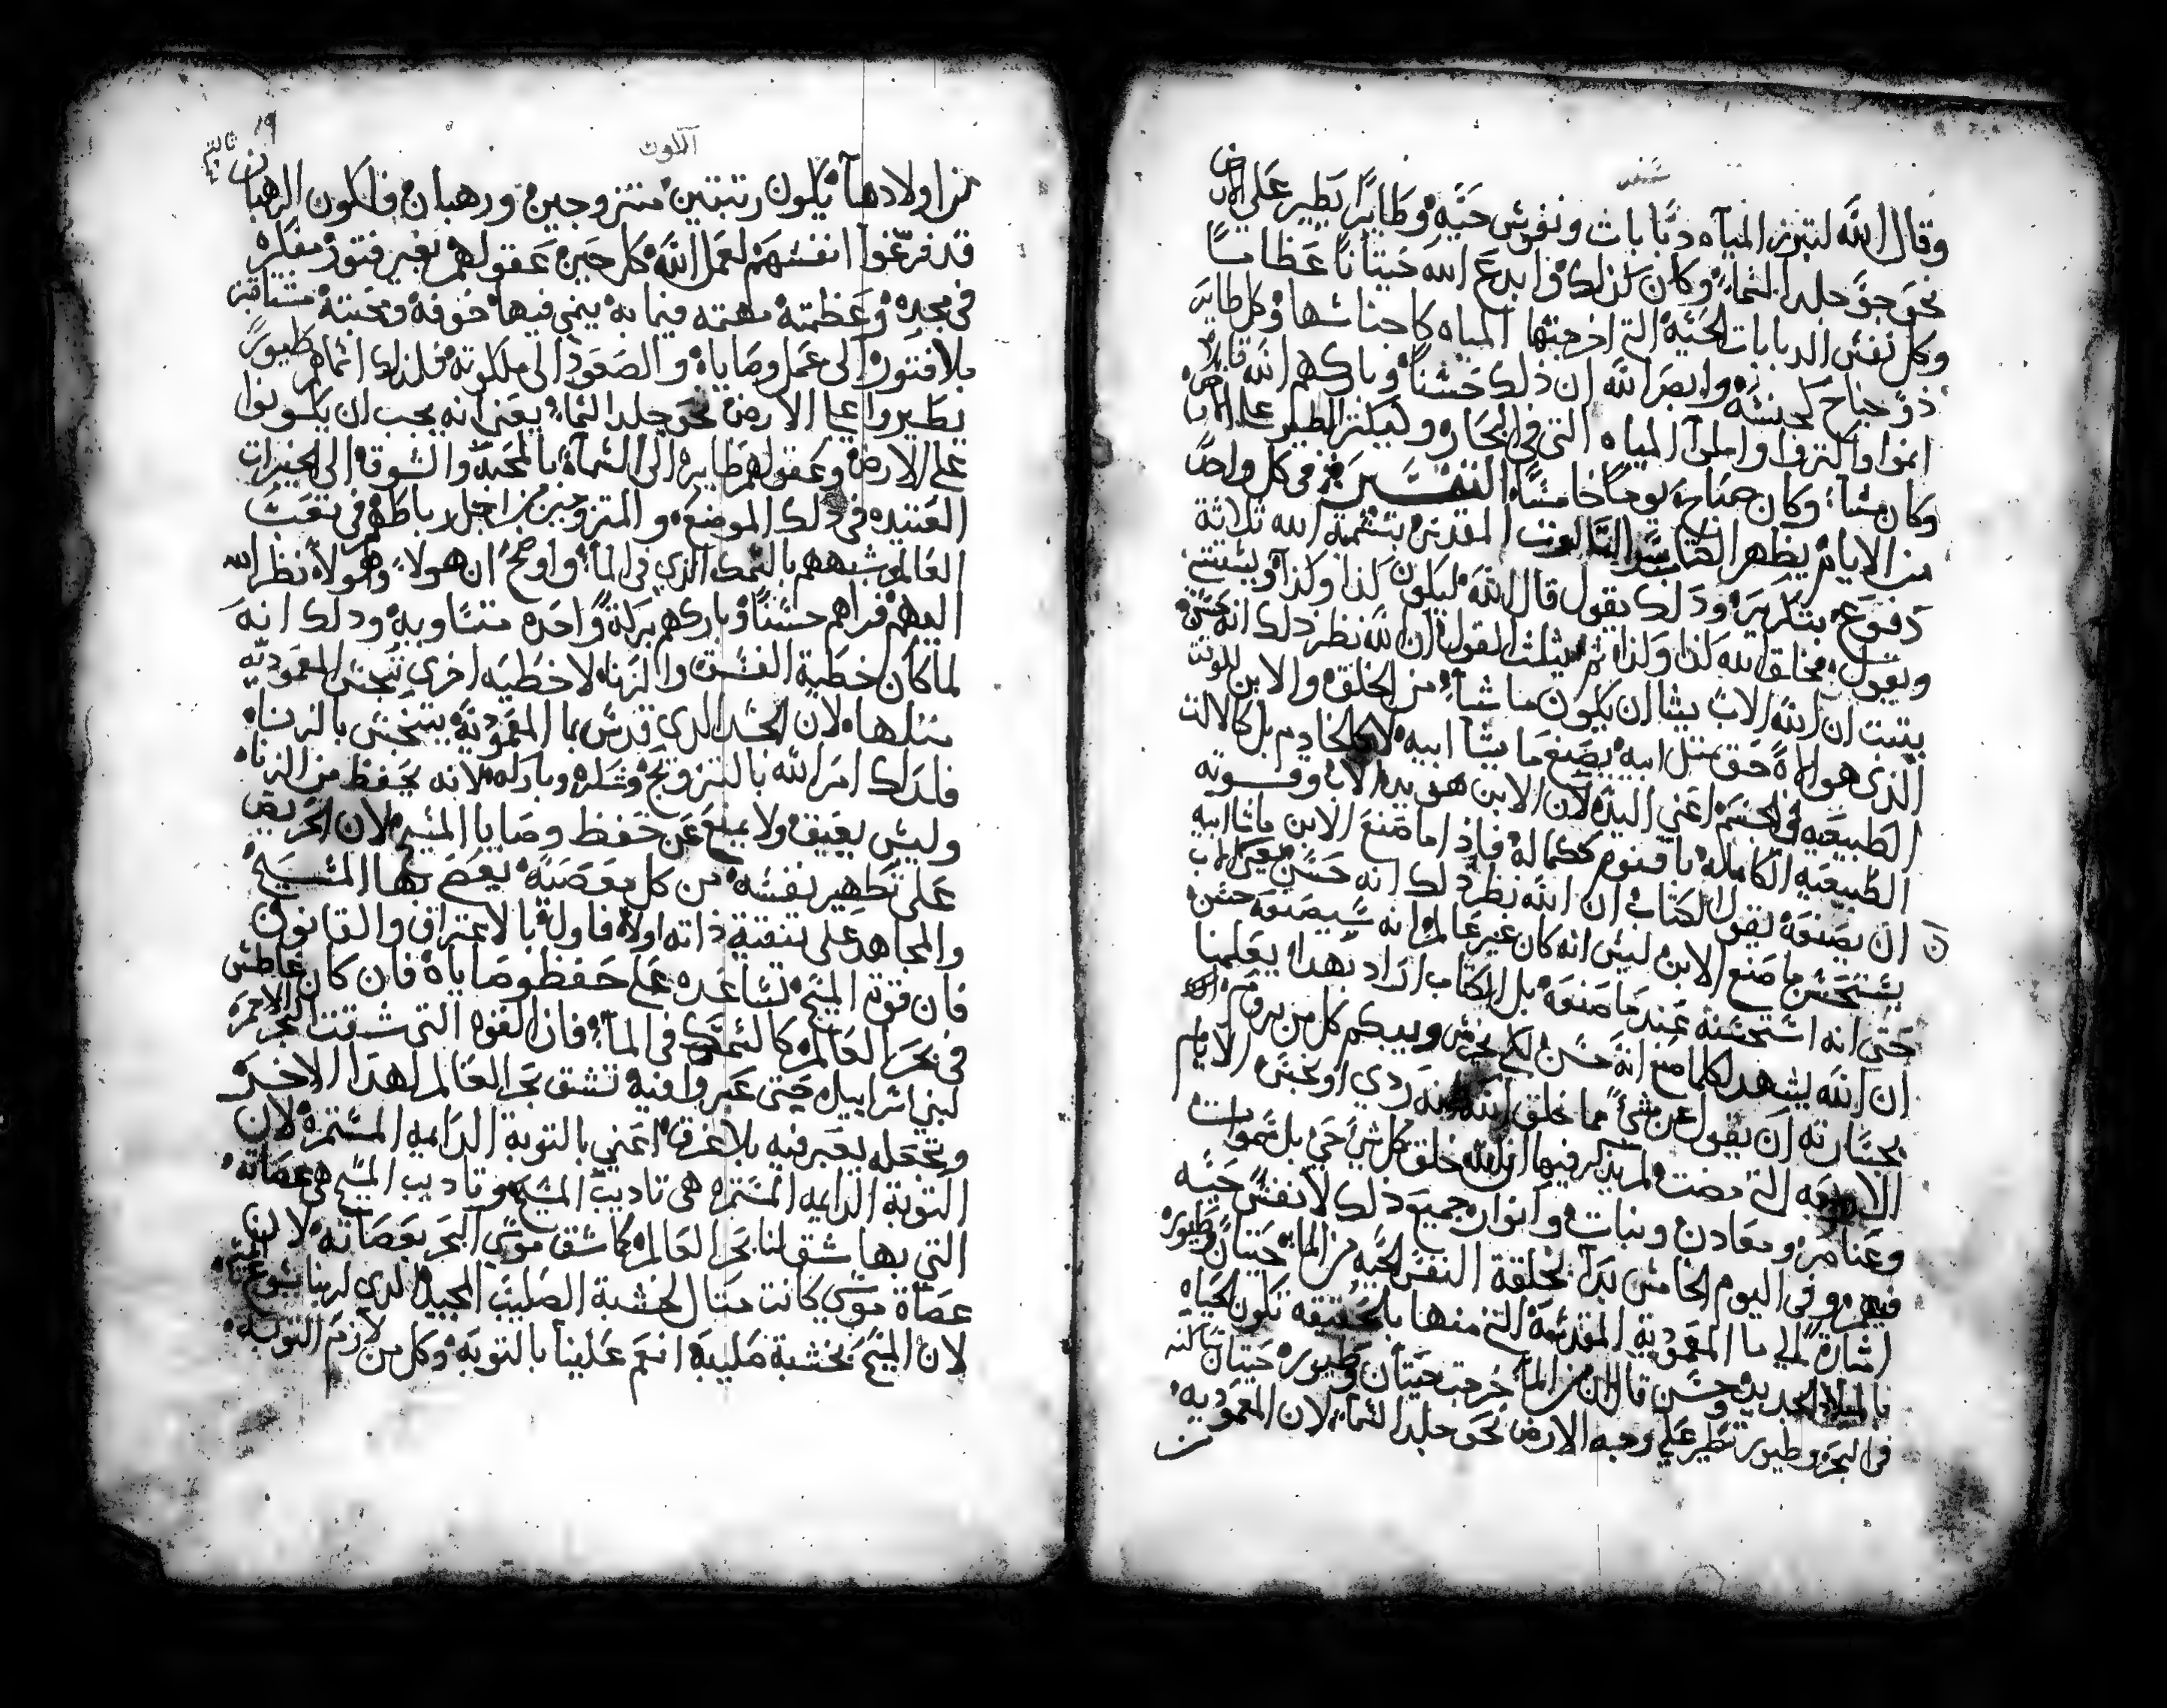 سفر
وقال الله لتبرز المياه دبابات ونفوس حيه وطايرا يطير علي الارض
نحو جو جلد السماء وكان كذلك وابدع الله حيتانا عظاما
وكل نفس الدبابات الحيه التي اخرجتها المياه كاجناسها وكل طاير
ذو جناح كجنسه وابصر الله ان ذلك حسنا وباركهم الله قايلا
انموا واكثروا واملوا المياه التي في البحار وليكثر الطير علي الارض
وكان مسا وكان صباح يوما خامسا التفسير في كل واحد
من الايام يظهر الكتاب الثالوث المقدس بتسمية الله ثلاثة
دفوع بتكرير وذلك يقول قال الله ليكون كذا وكذا ويستثني
ويقول فخلق الله كذا وكذا ثم يثلث القول ان الله نظر ذلك انه حسن
يثبت ان الله الاب يشا ان يكون ما شا من الخلق والابن
الذي هو الاه حق مثل ابيه يصنع ما يشا ابيه لا كالخادم بل كالالة
الطبيعيه في الجسم اعني اليد لان الابن هو يد الاب وقوته
الطبيعيه الكامله باقنوم ككماله فاذا ما صنع الابن ماشا ابيه
ان يصنعه يقول الكتاب ان الله نظر ذلك انه حسن
يستحسن ما صنع الابن ليس انه كان غير عالم انه سيصنعه حسن
حتي انه استحسنه عند ما صنعه بل الكتاب اراد بهذا يعلمنا
ان الله يشهد لكلما صنع انه حسن لكي يخرس ويبكم كل من يروم
بجسارته ان يقول عن شي مما خلق الله انه ردي او نجس الايام
الاربعه التي مضت لم يذكر فيها ان الله خلق كل شي حي بل سموات
وعناصر ومعادن ونبات وانوار جميع ذلك لا نفس حيه
فيهم وفي اليوم الخامس بدا بخلقة النفس الحيه من الماء حيتان وطيور
اشارة الي ما المعمودية المقدسة التي منها بالحقيقه تكون الحياه
بالميلاد الجديد وحسن قال ان من الما خرجت حيتان وطيور حيتان ساكنه
في البحر وطيور تطير علي وجه الارض نحو جلد السماء لان المعموديه
الكون
١٩
من اولادها يكون رتبتين متزوجين ورهبان فاكون الرهبان
قد فرغوا انفسهم لعمل الله كل حين عقولهم بغير فتور مفكره
في مجده وعظمته مهتمه فيما به ينمي فيها خوفه ومحبته مشتاقين
بلا فتور الي عمل وصاياه والصعود الي ملكوته فلذلك اسماهم طيورا
يطيروا علي الارض نحو جلد السماء يعني انه يجب ان يكونوا
علي الارض وعقولهم طايره الي السماء بالمحبه والشوق الي الخيرات
العتيده في ذلك الموضع والمتزوجين من اجل رباطهم في تعب
العالم شبههم بالسمك الذي في الماء واوضح ان هولاء وهولاء نظر الله
اليهم فراهم حسنا وباركهم بركة واحده متساويه وذلك انه
لما كان خطية الفسق والزنا لا خطيه اخري تنجس المعموديه
مثلها لان الجسد الذي قدس بما المعموديه يتنجس بالزنا
فلذلك امر الله بالتزويج وشكره وباركه لانه يحفظ من الزنا
وليس يعيق ولا يمنع عن حفظ وصايا المسيح لان الحريص
علي تطهير نفسه من كل معصية يعصي بها المسيح
والمجاهد علي تنقية ذاته اولا فاولا بالاعتراف والقانون
فان قوة المسيح تساعده علي حفظ وصاياه فان كان غاطس
في بحر العالم كالسمك في الماء فان القوه التي شقت البحر الاحمر
لبني اسراييل حتي عبروا فيه تشق بحر العالم لهذا الاخر
وتجعله يعبر فيه بلا غرق اعني بالتوبة الدايمه المستمره لان
التوبة الدايمه المستمره هي تاديب المسيح وتاديب المسيح هي عصاته
التي بها شق لنا بحر العالم كما شق موسي البحر بعصاته لان
عصاة موسي كانت مثال لخشبة الصليب المجيد الذي لربنا يسوع المسيح
لان المسيح بخشبة صليبه انعم علينا بالتوبة وكل من لازم التوبه